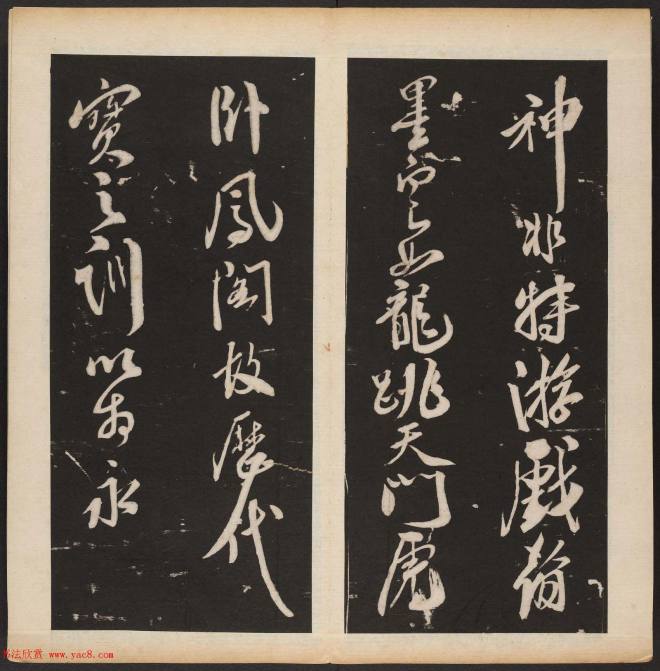 神非特游戲翰
墨而已如龍跳天門虎
卧鳳閣故歷代
寶之訓以為永
书法欣赏 www.yac8.com